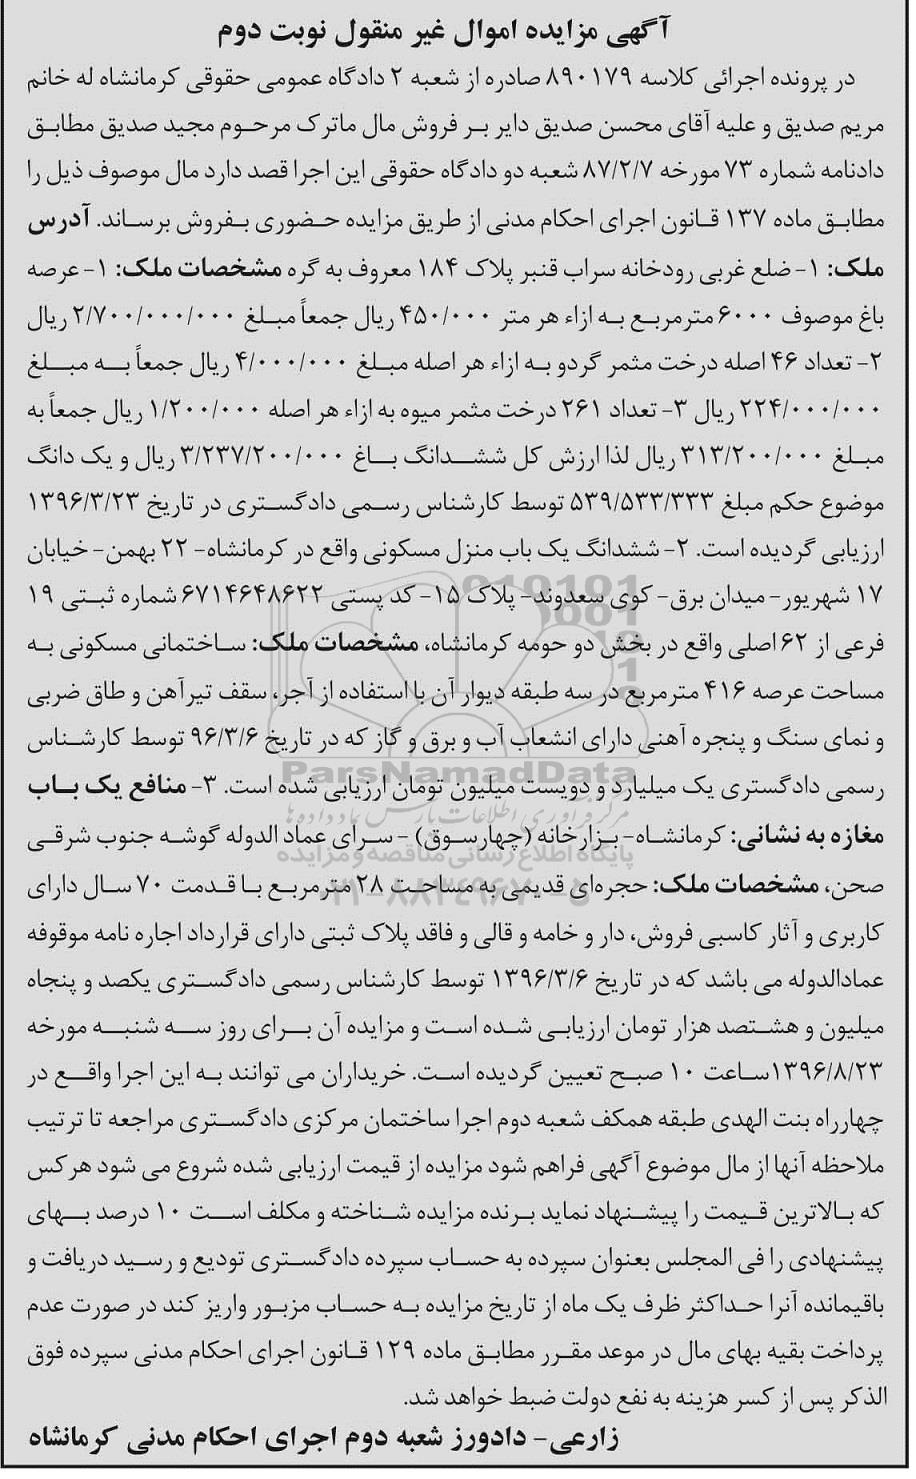 آگهی مزایده اموال غیر منقول نوبت دوم
در پرونده اجرائی کلاسه ۸۹۰۱۷۹ صادره از شعبه ۲ دادگاه عمومی حقوقی کرمانشاه له خانم
مریم صدیق و علیه آقای محسن صدیق دایر بر فروش مال ماترک مرحوم مجید صدیق مطابق
دادنامه شماره ۷۳ مورخه ۸۷/۲/۷ شعبه دو دادگاه حقوقی این اجرا قصد دارد مال موصوف ذیل را
مطابق ماده ۱۳۷ قانون اجرای احکام مدنی از طریق مزایده حضوری بفروش برساند. آدرس
ملک: ۱- ضلع غربی رودخانه سراب قنبر پلاک ۱۸۴ معروف به گره مشخصات ملک: ۱- عرصه
باغ موصوف ۶۰۰۰ مترمربع به ازاء هر متر ۴۵۰/۰۰۰ ریال جمعاً مبلغ ۲/۷۰۰/۰۰۰/۰۰۰ ریال
۲- تعداد ۴۶ اصله درخت مثمر گردو به ازاء هر اصله مبلغ ۴/۰۰۰/۰۰۰ ریال جمعاً به مبلغ
۲۲۴/۰۰۰/۰۰۰ ریال ۳- تعداد ۲۶۱ درخت مثمر میوه به ازاء هر اصله ۱/۲۰۰/۰۰۰ ریال جمعاً به
مبلغ ۳۱۳/۲۰۰/۰۰۰ ریال لذا ارزش کل ششدانگ باغ ۳/۲۳۷/۲۰۰/۰۰۰ ریال و یک دانگ
موضوع حکم مبلغ ۵۳۹/۵۳۳/۳۳۳ توسط کارشناس رسمی دادگستری در تاریخ ۱۳۹۶/۳/۲۳
ارزیابی گردیده است. ۲- ششدانگ یک باب منزل مسکونی واقع در کرمانشاه- ۲۲ بهمن- خیابان
۱۷ شهریور- میدان برق- کوی سعدوند- پلاک ۱۵- کد پستی ۶۷۱۴۶۴۸۶۲۲ شماره ثبتی ۱۹
فرعی از ۶۲ اصلی واقع در بخش دو حومه کرمانشاه، مشخصات ملک: ساختمانی مسکونی به
مساحت عرصه ۴۱۶ مترمربع در سه طبقه دیوار آن با استفاده از آجر، سقف تیرآهن و طاق ضربی
و نمای سنگ و پنجره آهنی دارای انشعاب آب و برق و گاز که در تاریخ ۹۶/۳/۶ توسط کارشناس
ParsNamadData
رسمی دادگستری یک میلیارد و دویست میلیون تومان ارزیابی شده است. ۳- منافع یک باب
مرکز فرآوری اطلاعات پارس نماد داده ها
مغازه به نشانی: کرمانشاه- بزازخانه (چهارسوق) - سرای عماد الدوله گوشه جنوب شرقی
پایگاه اطلاع رسانی مناقصه و مزایده
صحن، مشخصات ملک: حجره‌ای قدیمی به مساحت ۲۸ مترمربع با قدمت ۷۰ سال دارای
۰۲۱-۸۸۳۴۹۶۷۰-۵
کاربری و آثار کاسبی فروش، دار و خامه و قالی و فاقد پلاک ثبتی دارای قرارداد اجاره نامه موقوفه
عمادالدوله می باشد که در تاریخ ۱۳۹۶/۳/۶ توسط کارشناس رسمی دادگستری یکصد و پنجاه
میلیون و هشتصد هزار تومان ارزیابی شده است و مزایده آن برای روز سه شنبه مورخه
۱۳۹۶/۸/۲۳ساعت ۱۰ صبح تعیین گردیده است. خریداران می توانند به این اجرا واقع در
چهارراه بنت الهدی طبقه همکف شعبه دوم اجرا ساختمان مرکزی دادگستری مراجعه تا ترتیب
ملاحظه آنها از مال موضوع آگهی فراهم شود مزایده از قیمت ارزیابی شده شروع می شود هرکس
که بالاترین قیمت را پیشنهاد نماید برنده مزایده شناخته و مکلف است ۱۰ درصد بهای
پیشنهادی را فی المجلس بعنوان سپرده به حساب سپرده دادگستری تودیع و رسید دریافت و
باقیمانده آنرا حداکثر ظرف یک ماه از تاریخ مزایده به حساب مزبور واریز کند در صورت عدم
پرداخت بقیه بهای مال در موعد مقرر مطابق ماده ۱۲۹ قانون اجرای احکام مدنی سپرده فوق
الذکر پس از کسر هزینه به نفع دولت ضبط خواهد شد.
زارعی- دادورز شعبه دوم اجرای احکام مدنی کرمانشاه